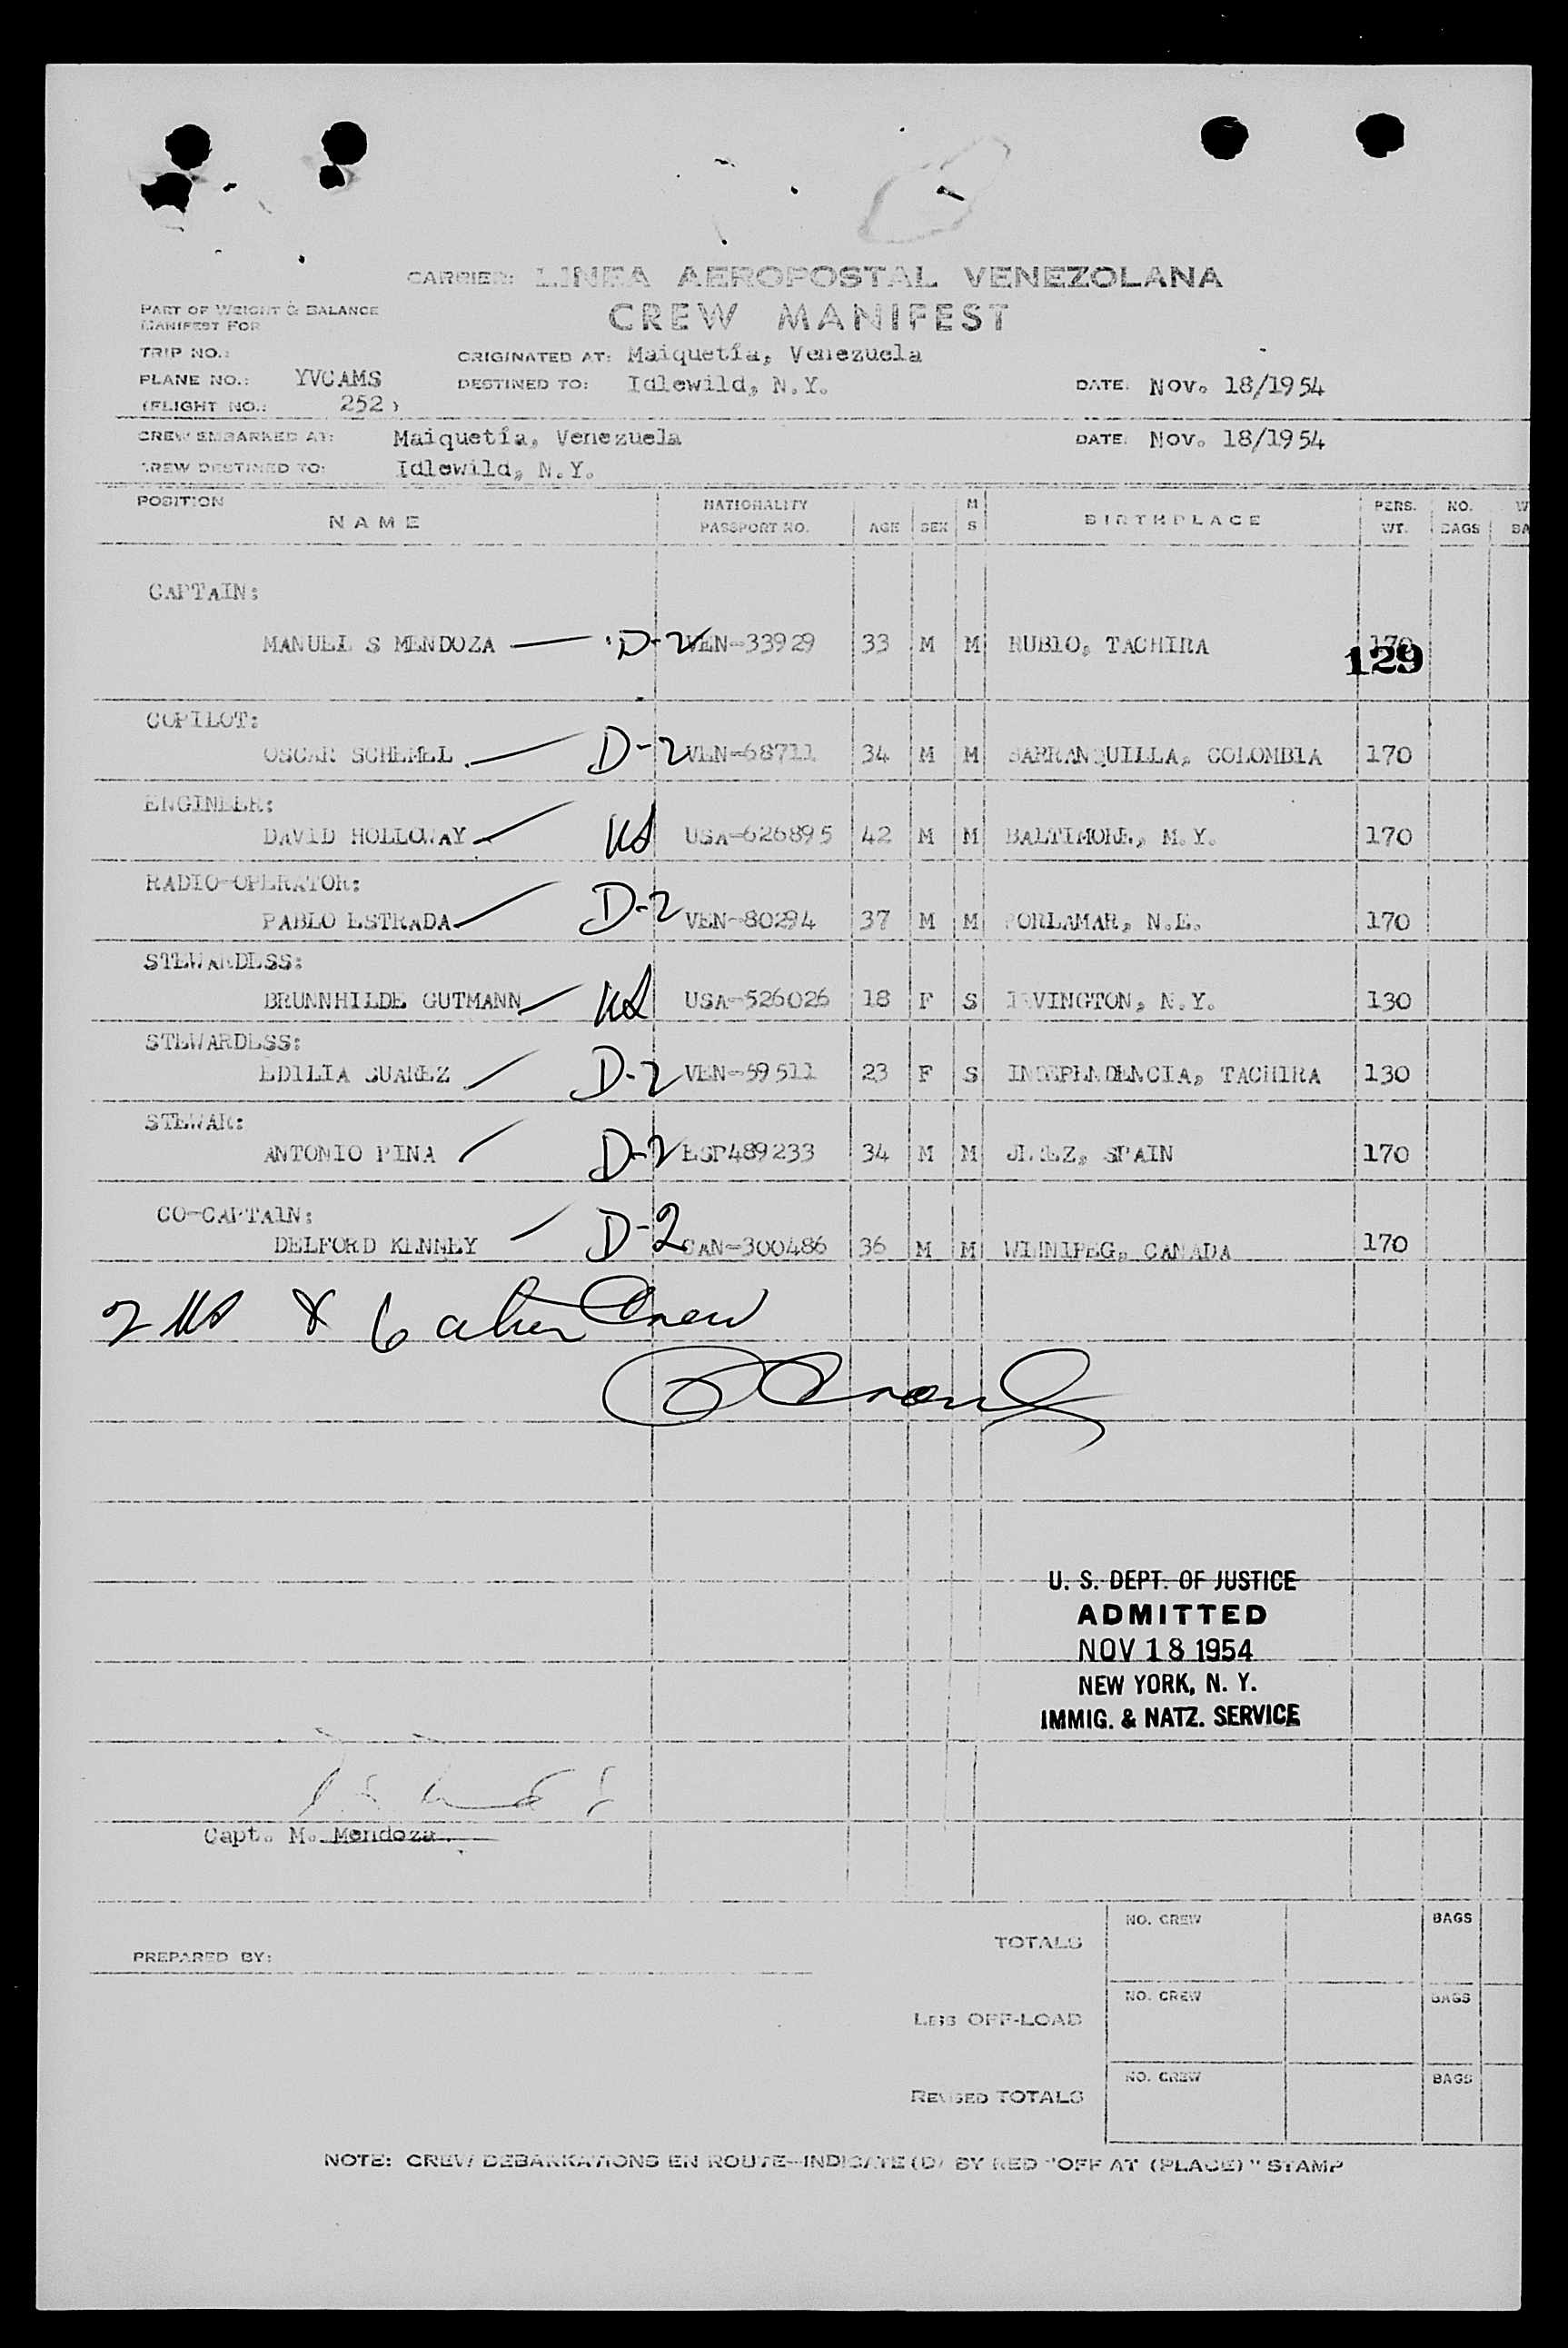 CARRIER: LINEA AEROPOSTAL VENEZOLANA
CREW MANIFEST
PART OF WEIGHT & BALANCE
MANIFEST FOR
TRIP NO.:
ORIGINATED AT: Maiquetía, Venezuela
PLANE NO.: YVCAMS DESTINED TO: Idlewild, N.Y. DATE: Nov. 18/1954
(FLIGHT NO.: 252)
CREW EMBARKED AT: Maiquetía, Venezuela DATE: Nov. 18/1954
CREW DESTINED TO: Idlewild, N.Y.
POSITION NAME NATIONALITY PASSPORT NO. AGE SEX M S BIRTHPLACE PERS. WT. NO. BAGS W BA
CAPTAIN:
MANUEL S MENDOZA D-2 VEN-33929 33 M M RUBIO, TACHIRA 170
129
COPILOT:
OSCAR SCHEMEL D-2 VEN-68711 34 M M BARRANQUILLA, COLOMBIA 170
ENGINEER:
DAVID HOLLOWAY US USA-626895 42 M M BALTIMORE, M.Y. 170
RADIO-OPERATOR:
PABLO ESTRADA D-2 VEN-80294 37 M M PORLAMAR, N.E. 170
STEWARDESS:
BRUNNHILDE GUTMANN US USA-526026 18 F S IRVINGTON, N.Y. 130
STEWARDESS:
EDILIA SUAREZ D-2 VEN-59511 23 F S INDEPENDENCIA, TACHIRA 130
STEWAR:
ANTONIO PINA D-2 ESP489233 34 M M JEREZ, SPAIN 170
CO-CAPTAIN:
DELFORD KENNEY D-2 CAN-300486 36 M M WINNIPEG, CANADA 170
2 US & 6 alien Crew
U. S. DEPT. OF JUSTICE
ADMITTED
NOV 18 1954
NEW YORK, N. Y.
IMMIG. & NATZ. SERVICE
Capt. M. Mendoza.
PREPARED BY:
TOTALS NO. CREW BAGS
LESS OFF-LOAD NO. CREW BAGS
REVISED TOTALS NO. CREW BAGS
NOTE: CREW DEBARKATIONS EN ROUTE--INDICATE (D) BY RED "OFF AT (PLACE)" STAMP